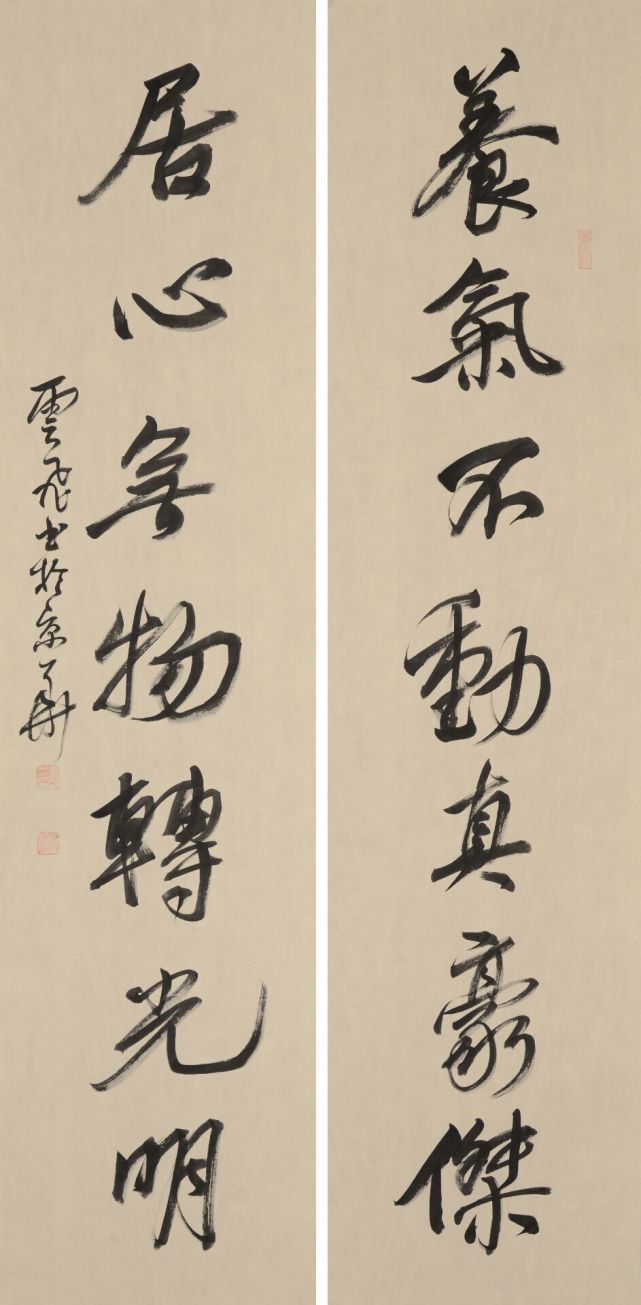 養氣不動真豪傑
居心無物轉光明
雲飛書於京華